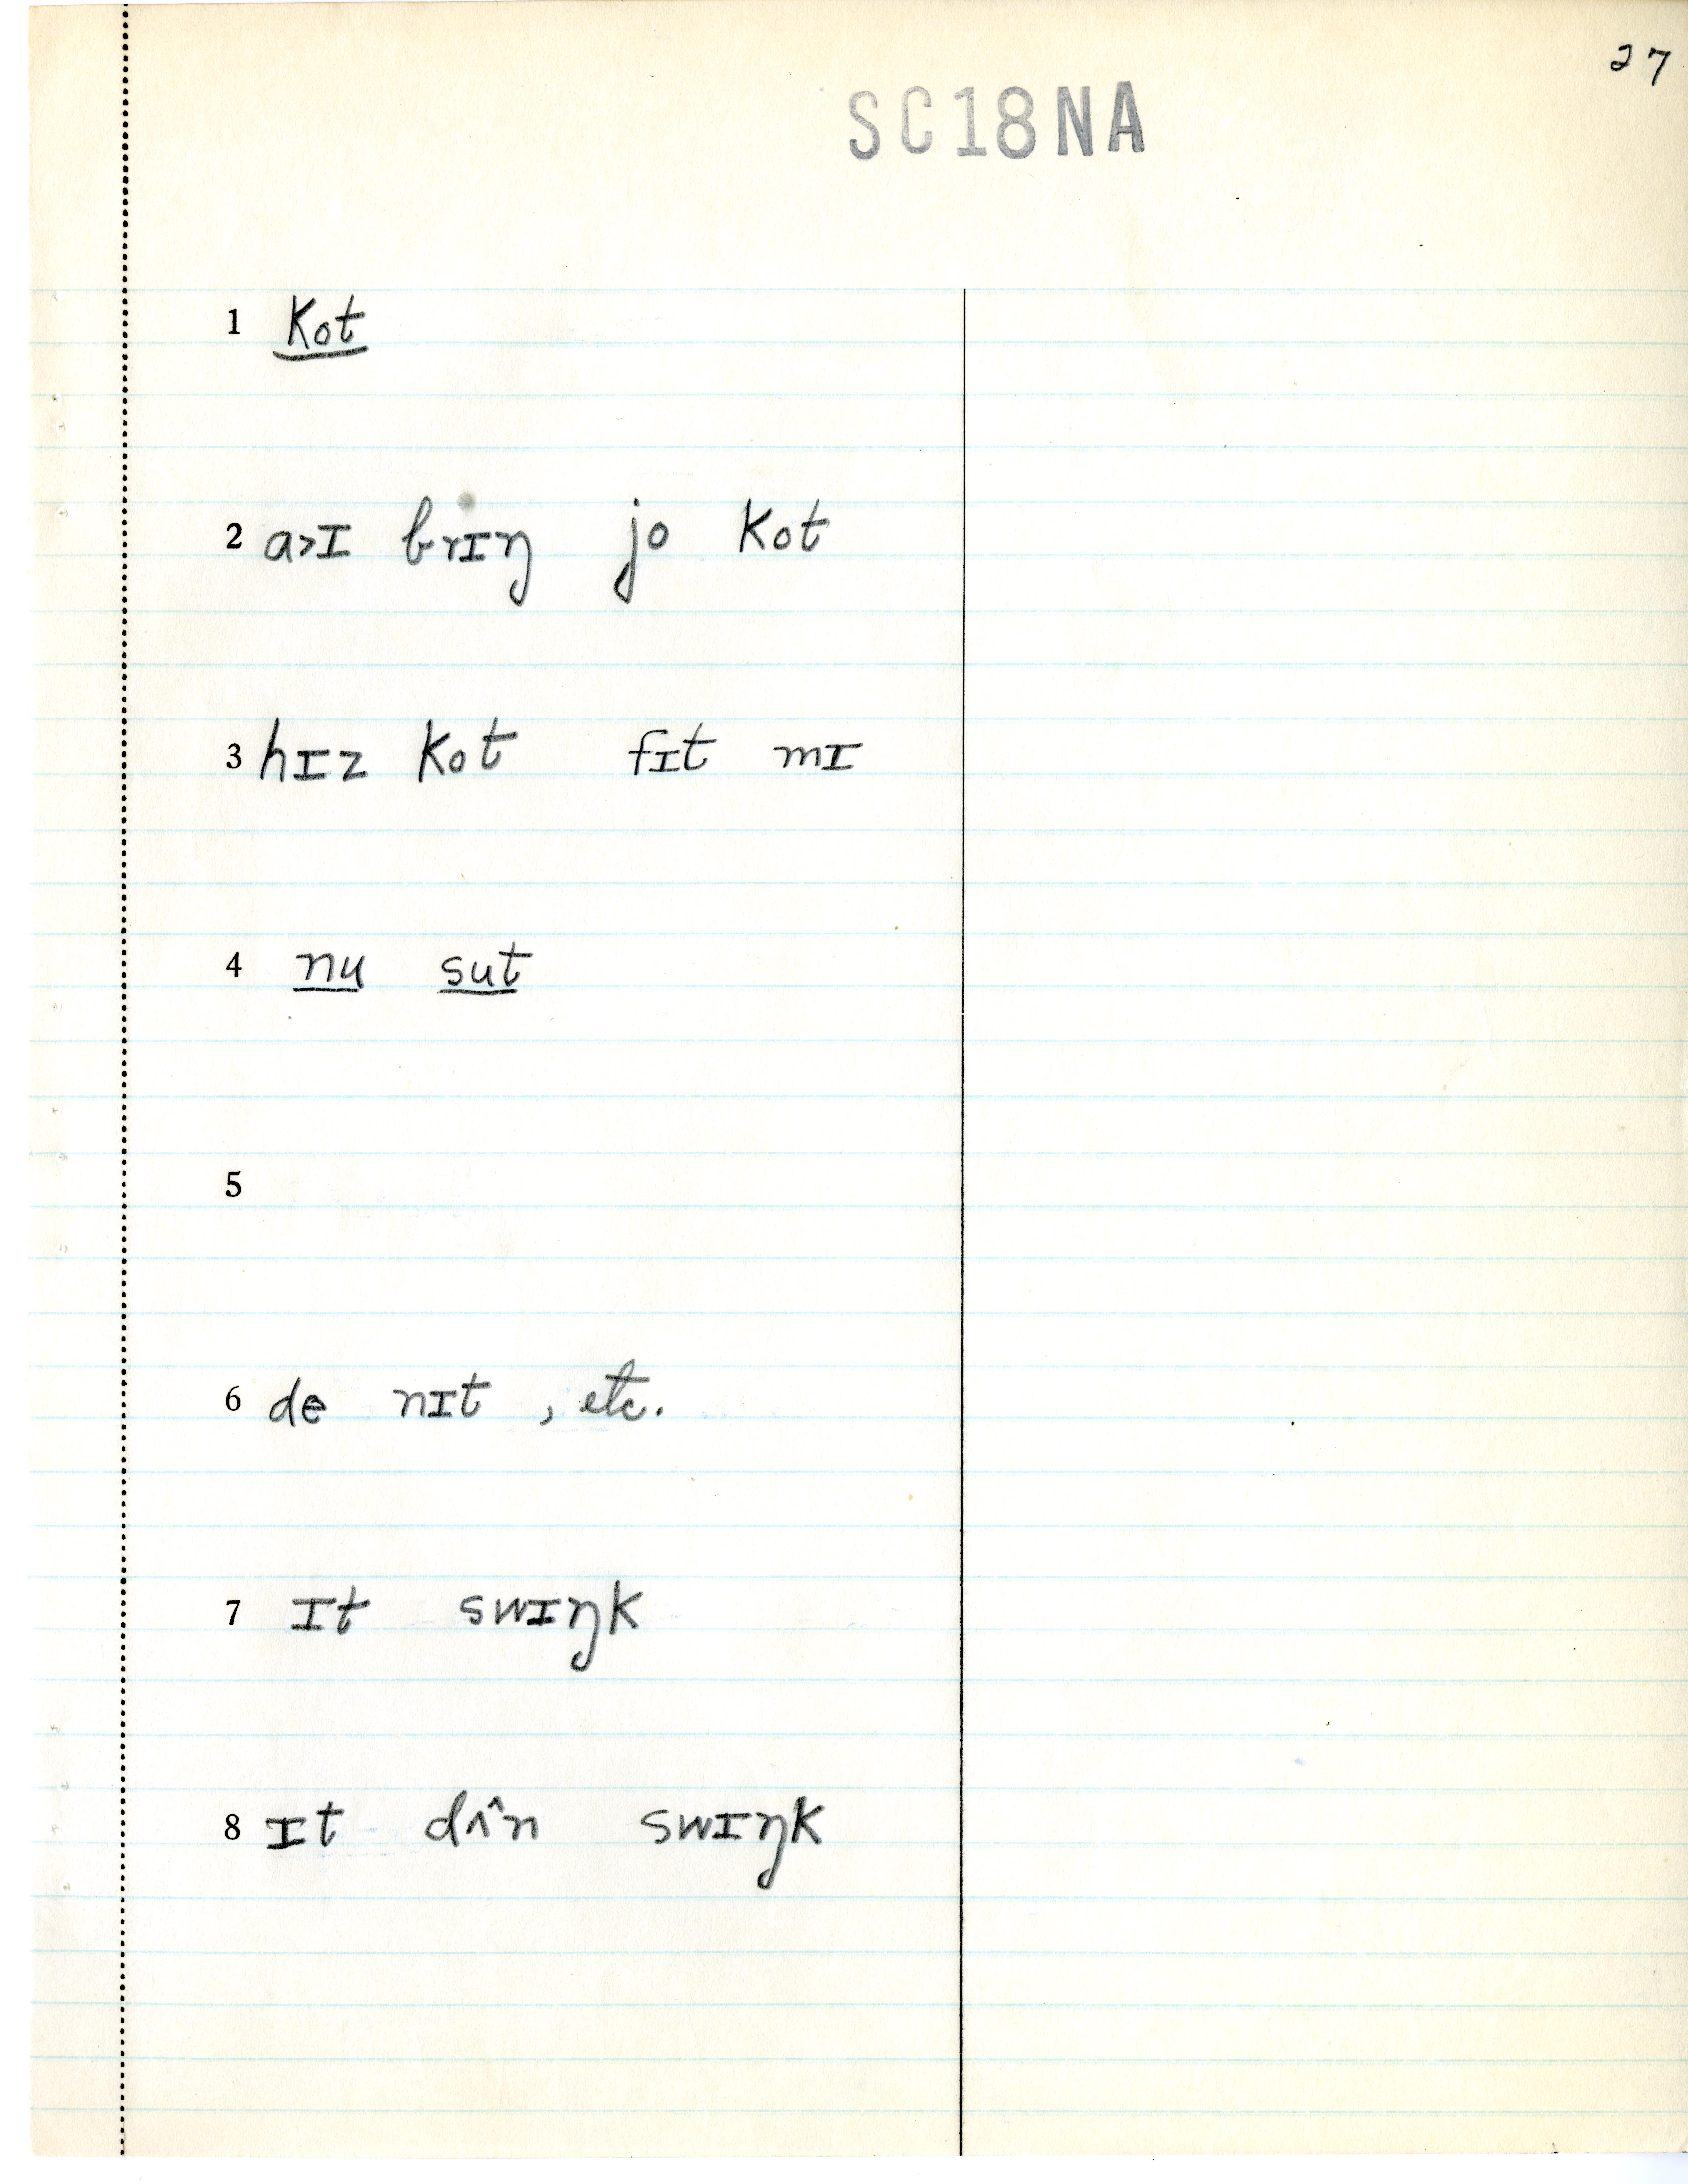 27
SC18NA
1 kot
2 a˃ɪ brɪŋ jo kot
3 hɪz kot fɪt mɪ
4 nu sut
5
6 de nɪt, etc.
7 ɪt swɪŋk
8 ɪt dʌ̂n swɪŋk